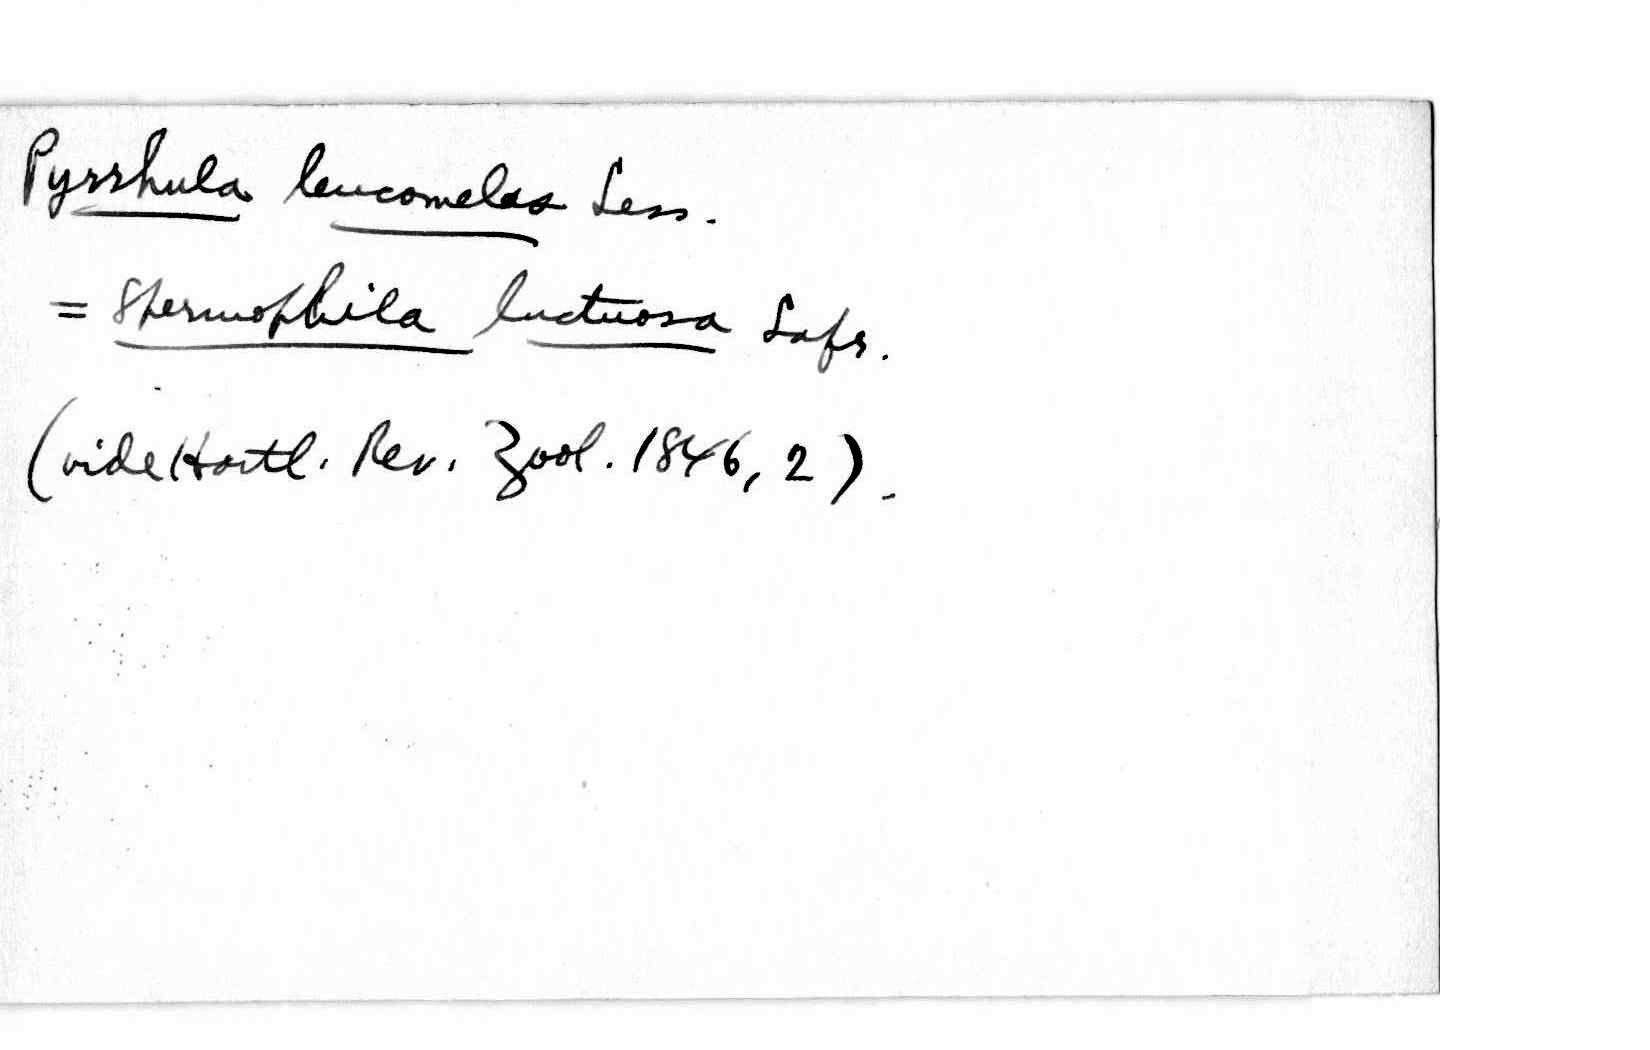 Pyrrhula leucomelas Less.
= Spermophila luctuosa Lafr.
(vide Hartl. Rev. Zool. 1846, 2).